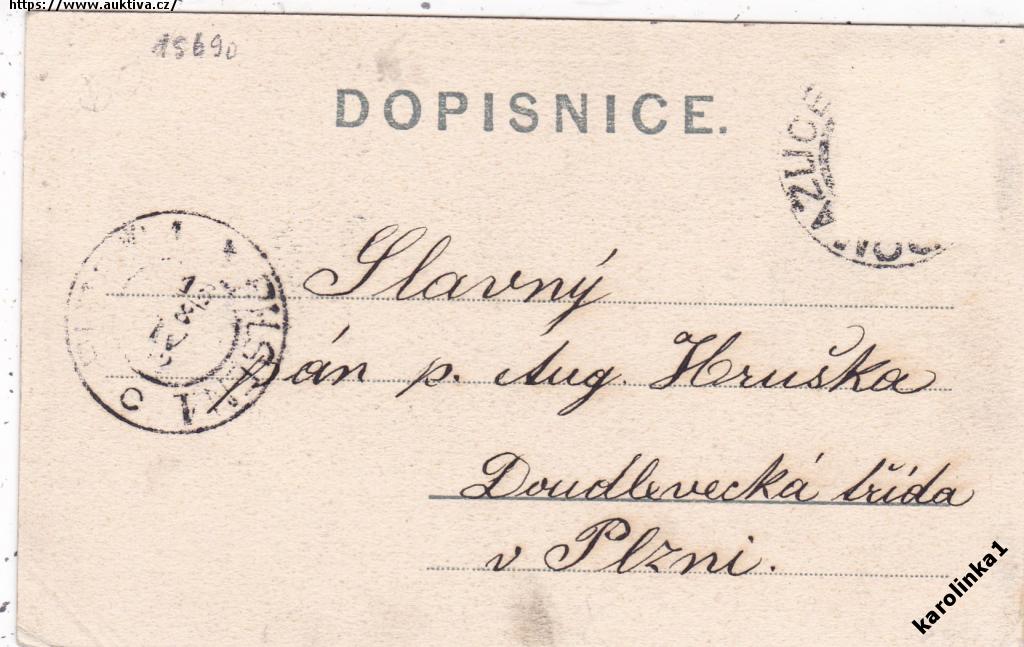 https://www.auktiva.cz/
15690
DOPISNICE.
Slavný
pán p. Aug. Hruška
Doudlevecká třída
v Plzni.
karolinka1